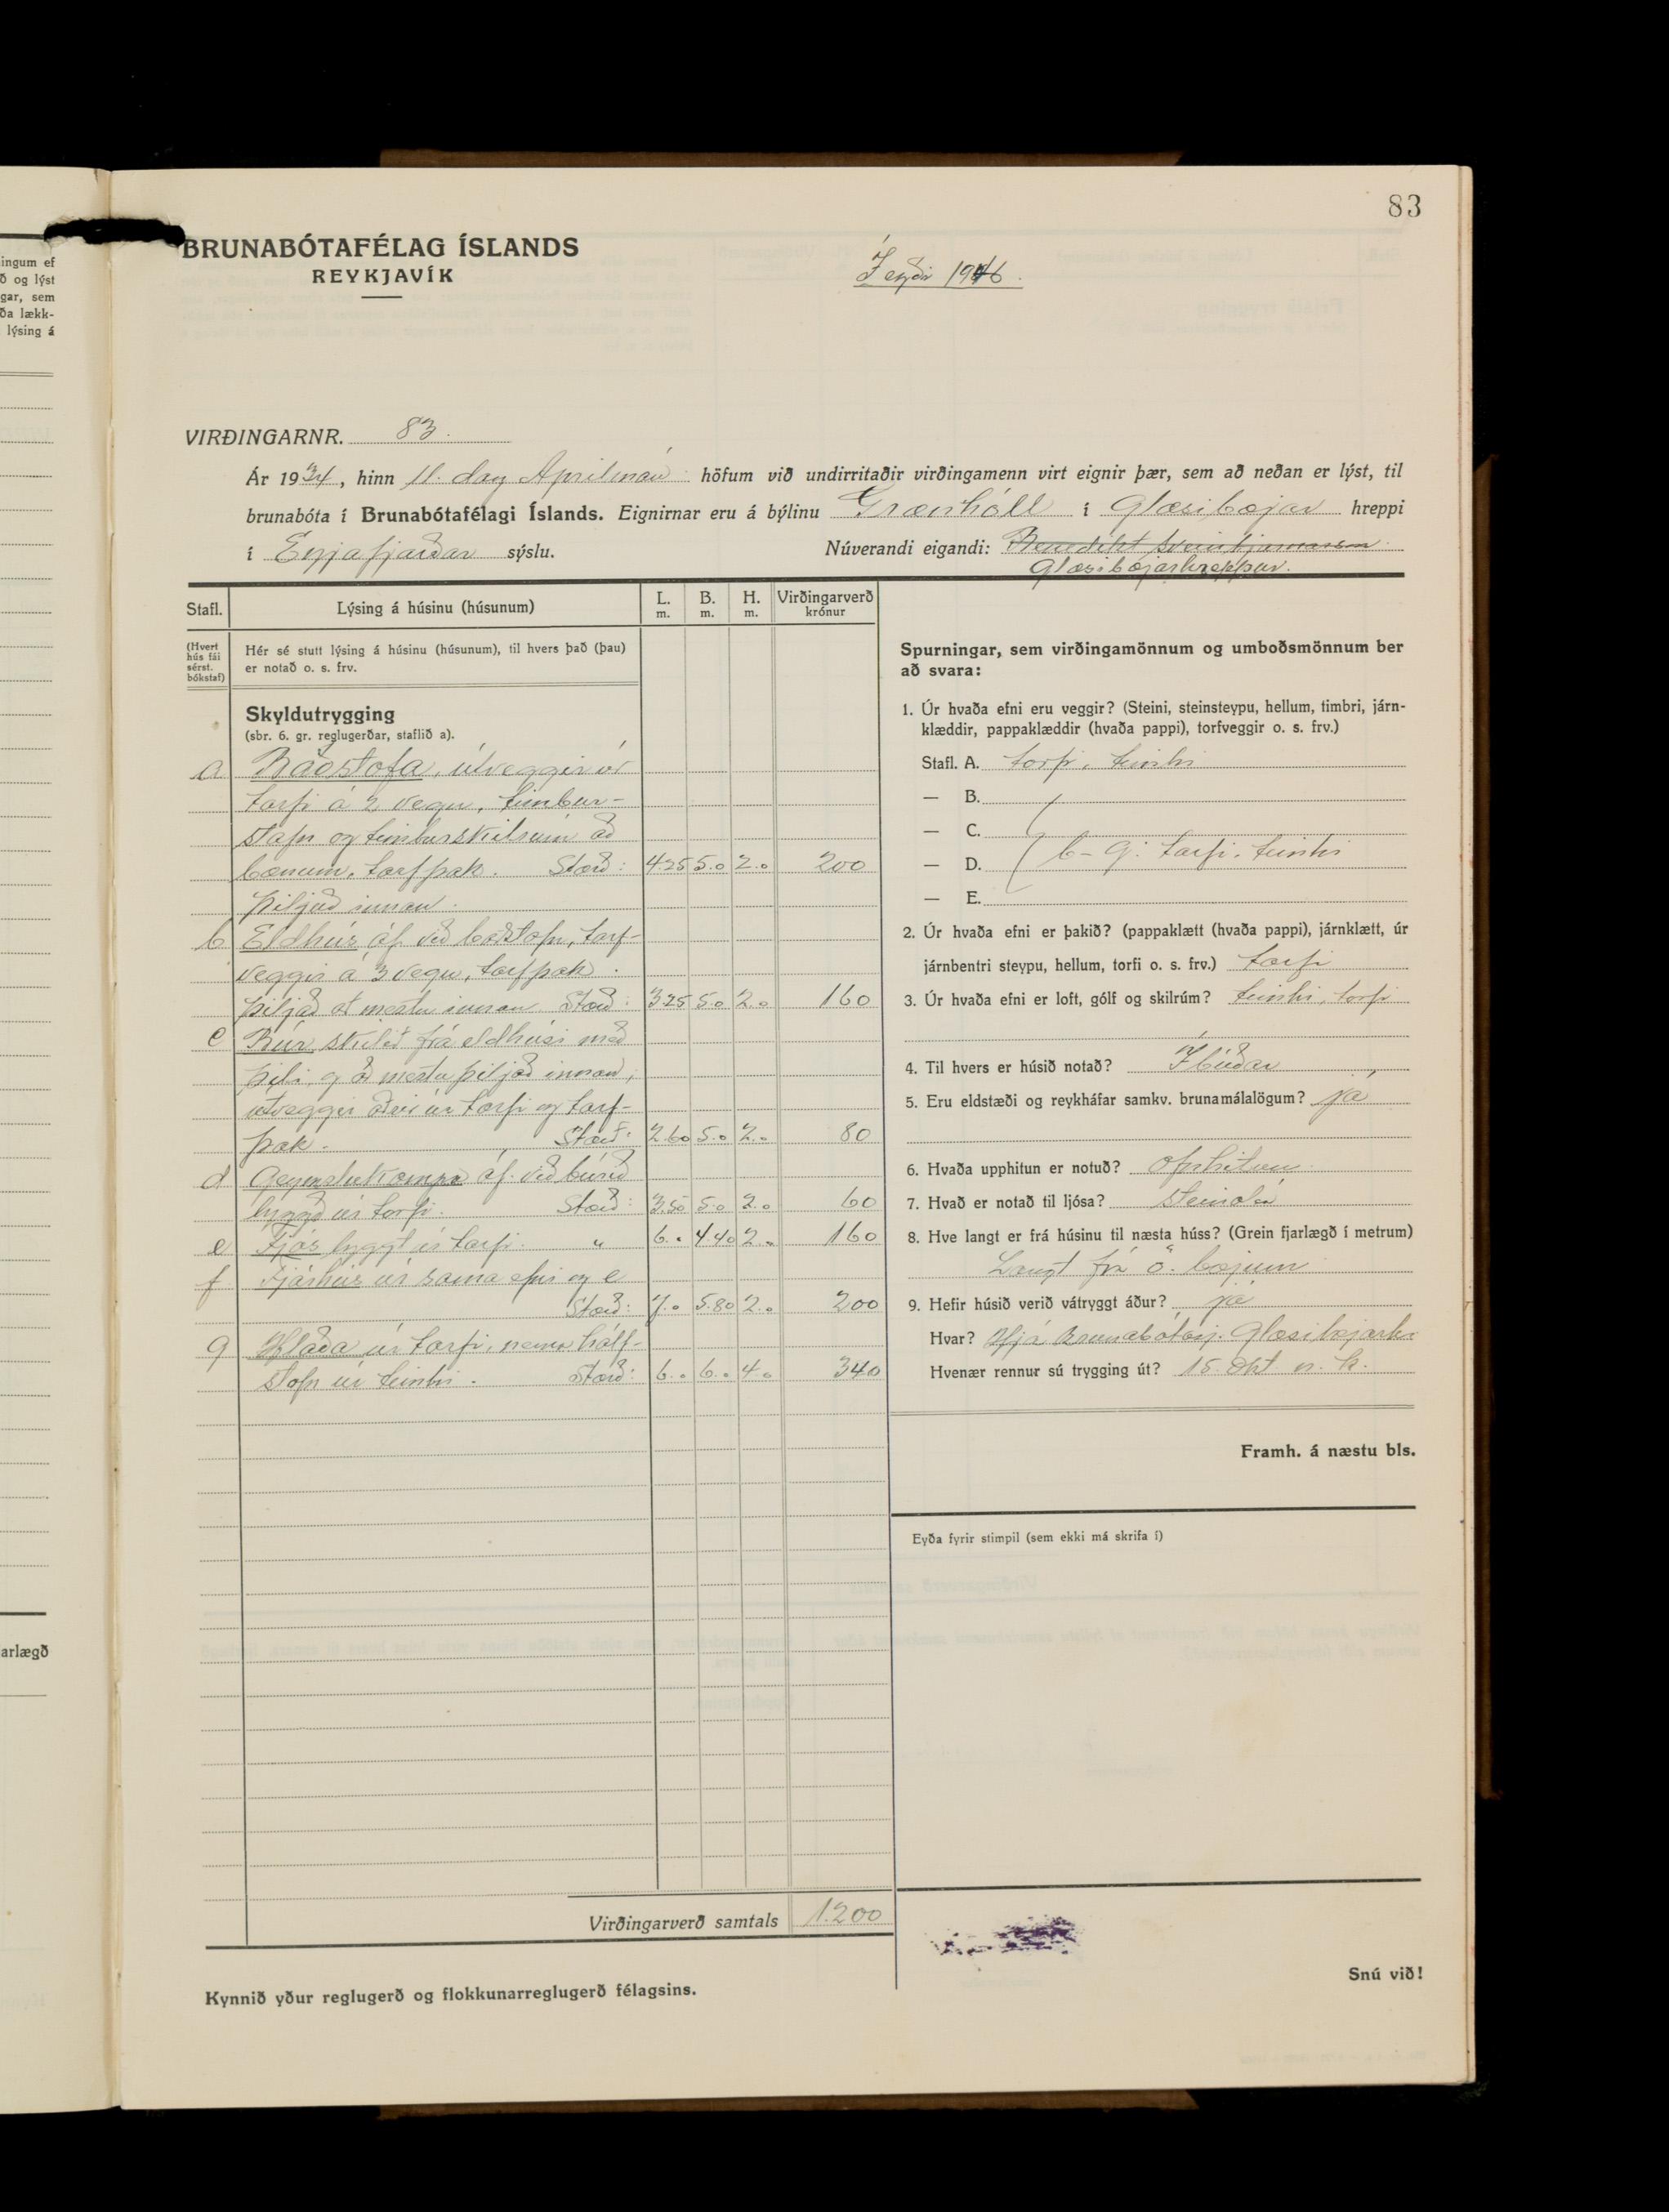 83
BRUNABÓTAFÉLAG ÍSLANDS
REYKJAVÍK
Í eyði 1946.
ingum ef
ð og lýst
gar, sem
ða lækk-
lýsing á
arlægð
VIRÐINGARNR. 83.
Ár 1934, hinn 11. dag Aprílmán. höfum við undirritaðir virðingamenn virt eignir þær, sem að neðan er lýst, til
brunabóta í Brunabótafélagi Íslands. Eignirnar eru á býlinu Grænhóll í Glæsibæjar hreppi
í Eyjafjarðar sýslu. Núverandi eigandi: Benedikt Sveinbjarnarson
Glæsibæjarhreppur.
Stafl. Lýsing á húsinu (húsunum) L. m. B. m. H. m. Virðingarverð krónur
(Hvert hús fái sérst. bókstaf)
Hér sé stutt lýsing á húsinu (húsunum), til hvers það (þau)
er notað o. s. frv.
Skyldutrygging
(sbr. 6. gr. reglugerðar, staflið a).
a Baðstofa, útveggir úr
torfi á 2 vegu, timbur-
stafn og timburskilrúm að
bænum, torfþak. Stærð: 4.25 5.0 2.0 200
Þiljað innan.
b Eldhús áf. við baðstofu, torf-
veggir á 3 vegu, torfþak.
þiljað að mestu innan Stærð: 3.25 5.0 2.0 160
c Búr, skilið frá eldhúsi með
þili, og að mestu þiljað innan,
útveggir úr torfi og torf-
þak. Stærð: 2.60 5.0 2.0 80
d Geymslukompa áf. við búrið
byggð úr torfi. Stærð: 3.50 5.0 2.0 60
e Fjós byggt úr torfi. " 6.0 4.40 2.0 160
f Fjárhús úr sama efni og e
Stærð: 7.0 5.80 2.0 200
g Hlaða úr torfi, nema hálf-
stafn úr timbri. Stærð: 6.0 6.0 4.0 340
Virðingarverð samtals 1.200
Kynnið yður reglugerð og flokkunarreglugerð félagsins.
Spurningar, sem virðingamönnum og umboðsmönnum ber
að svara:
1. Úr hvaða efni eru veggir? (Steini, steinsteypu, hellum, timbri, járn-
klæddir, pappaklæddir (hvaða pappi), torfveggir o. s. frv.)
Stafl. A. torfi, timbri
— B.
— C.
— D. b - g: torfi, timbri
— E.
2. Úr hvaða efni er þakið? (pappaklætt (hvaða pappi), járnklætt, úr
járnbentri steypu, hellum, torfi o. s. frv.) torfi
3. Úr hvaða efni er loft, gólf og skilrúm? timbri, torfi
4. Til hvers er húsið notað? Íbúðar
5. Eru eldstæði og reykháfar samkv. brunamálalögum? já
6. Hvaða upphitun er notuð? Ofnhitun
7. Hvað er notað til ljósa? steinolía
8. Hve langt er frá húsinu til næsta húss? (Grein fjarlægð í metrum)
Langt frá ö. bæjum
9. Hefir húsið verið vátryggt áður? já
Hvar? Hjá Brunabótasj. Glæsibæjarhr.
Hvenær rennur sú trygging út? 15. Okt. n. k.
Framh. á næstu bls.
Eyða fyrir stimpil (sem ekki má skrifa í)
Snú við!